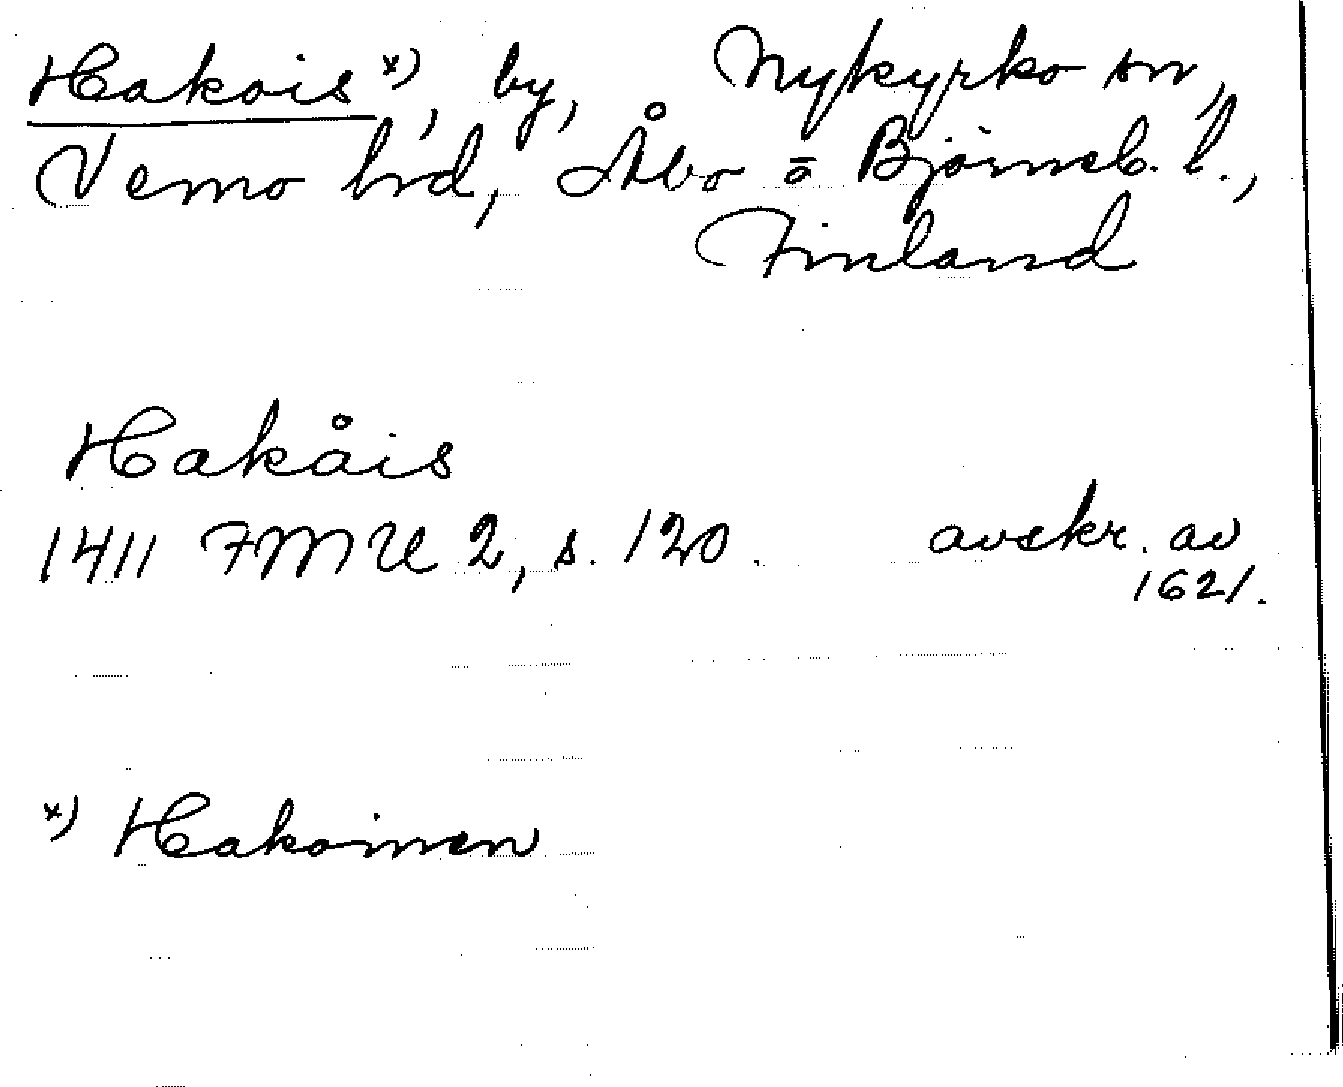 Hakois x), by, Nykyrko sn,
Vemo hd, Åbo o Björneb. l.,
Finland
Hakåis
1411 FMU 2, s. 120. avskr. av
1621.
x) Hakoinen